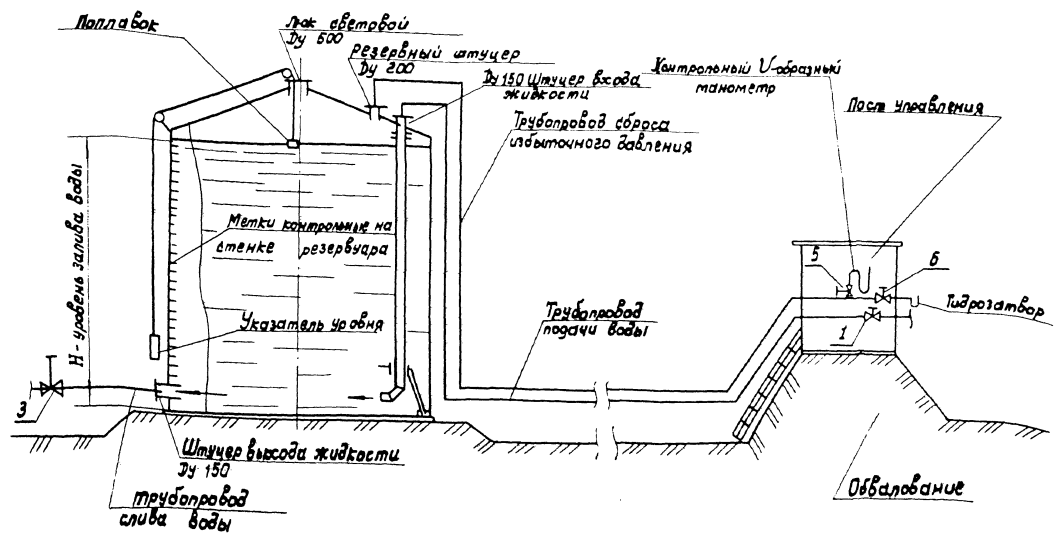 Поплавок
Люк световой
Ду 500
Резервный штуцер
Ду 200
Ду 150 Штуцер входа
жидкости
Контрольный U-образный
манометр
Пост управления
Трубопровод сброса
избыточного давления
Н - уровень залива воды
Метки контрольные на
стенке резервуара
5
6
Гидрозатвор
Указатель уровня
Трубопровод
подачи воды
1
3
Штуцер выхода жидкости
Ду 150
Трубопровод
слива воды
Обвалование